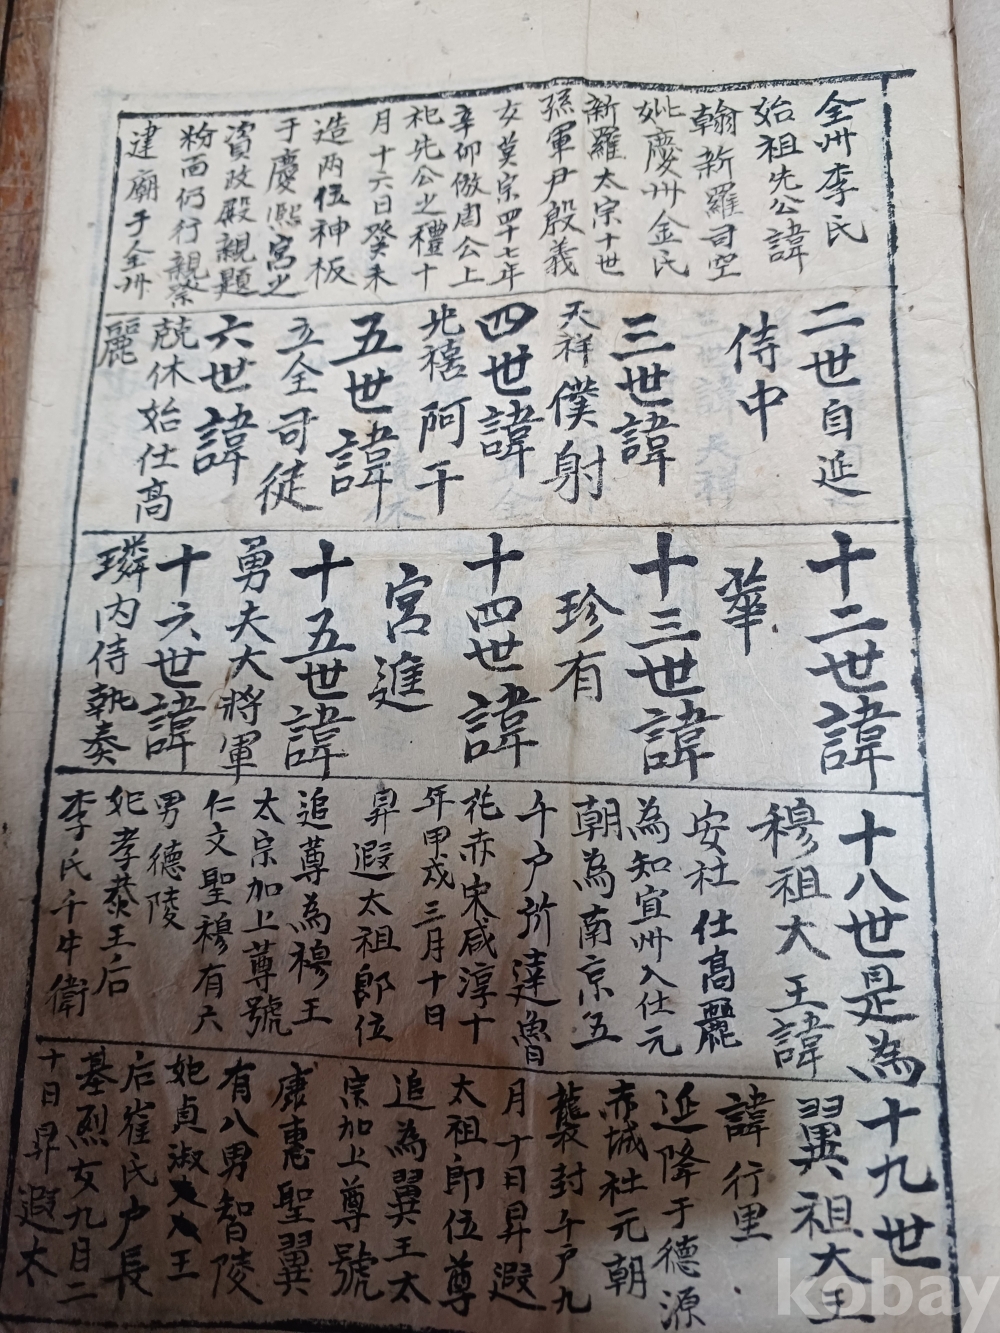 全州李氏
始祖先公諱
翰新羅司空
妣慶州金氏
新羅太宗十世
孫軍尹殷義
女英宗四十七年
辛卯倣周公上
祀先公之禮十
月十六日癸未
造两位神板
于慶熙宮之
資政殿親題
粉面仍行親祭
建廟于全州
二世自延
侍中
三世諱
天祥僕射
四世諱
光禧阿干
五世諱
立全司徒
六世諱
兢休始仕高
麗
十二世諱
華
十三世諱
珍有
十四世諱
宮進
十五世諱
勇夫大將軍
十六世諱
璘內侍執奏
十八世是為
穆祖大王諱
安社仕高麗
為知宜州入仕元
朝為南京五
千户所達魯
花赤宋咸淳十
年甲戌三月十日
昇遐太祖郎位
追尊為穆王
太宗加上尊號
仁文聖穆有六
男德陵
妃孝恭王后
李氏千牛衛
十九世
翼祖大王
諱行里
延降于德源
赤城社元朝
襲封千户九
月十日昇遐
太祖即位尊
追為翼王太
宗加上尊號
康惠聖翼
有八男智陵
妃貞淑王
后崔氏户長
基烈女九月二
十日昇遐太
kobay